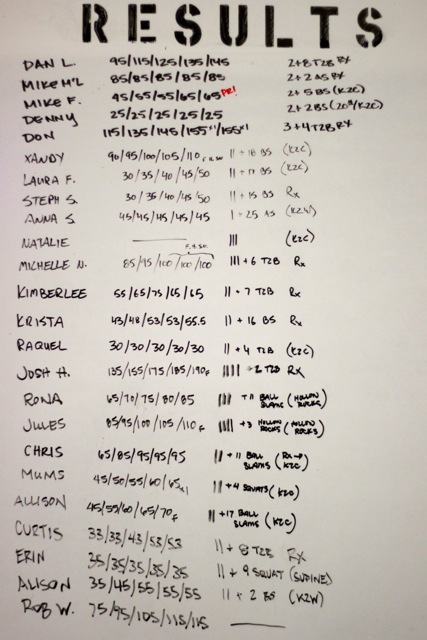 RESULTS
DAN L. 95/115/125/135/145 2+8 T2B RX
MIKE M'L 85/85/85/85/85 2+2 AS RX
MIKE F. 45/55/55/65/65 PR! 2+5 BS (K2C)
DENNY 25/25/25/25/25 2+2BS (20#/K2C)
DON 115/135/145/155/155x1 3+4 T2B RX
XANDY 90/95/100/105/110 II+18 BS (K2C)
LAURA F. 30/35/40/45/50 II+17 BS (K2C)
STEPH S. 30/35/40/45/50 II+15 BS Rx
ANNA S. 45/45/45/45/45 1+25 AS (K2W)
NATALIE III (K2C)
MICHELLE N. 85/95/100/100/100 F.H.SQ. III+6 T2B Rx
KIMBERLEE 55/65/75/65/65 II+7 T2B Rx
KRISTA 43/48/53/53/55.5 II+16 BS Rx
RAQUEL 30/30/30/30/30 II+4 T2B (K2C)
JOSH H. 135/155/175/185/190F IIII+2 T2B RX
RONA 65/70/75/80/85 IIII +11 BALL SLAMS (HOLLOW ROCKS)
JULES 85/95/100/105/110F IIII+3 HOLLOW ROCKS (HOLLOW ROCKS)
CHRIS 65/85/95/95/95 II+11 BALL SLAMS (Rx→K2C)
MUMS 45/50/55/60/65x1 II+4 SQUATS (K2C)
ALLISON 45/55/60/65/70F II+17 BALL SLAMS (K2C)
CURTIS 33/33/43/53/53 II+8 T2B RX
ERIN 35/35/35/35/35 II+9 SQUAT (SUPINE)
ALISON 35/45/55/55/55 II+2 BS (K2W)
ROB W. 75/95/105/115/115